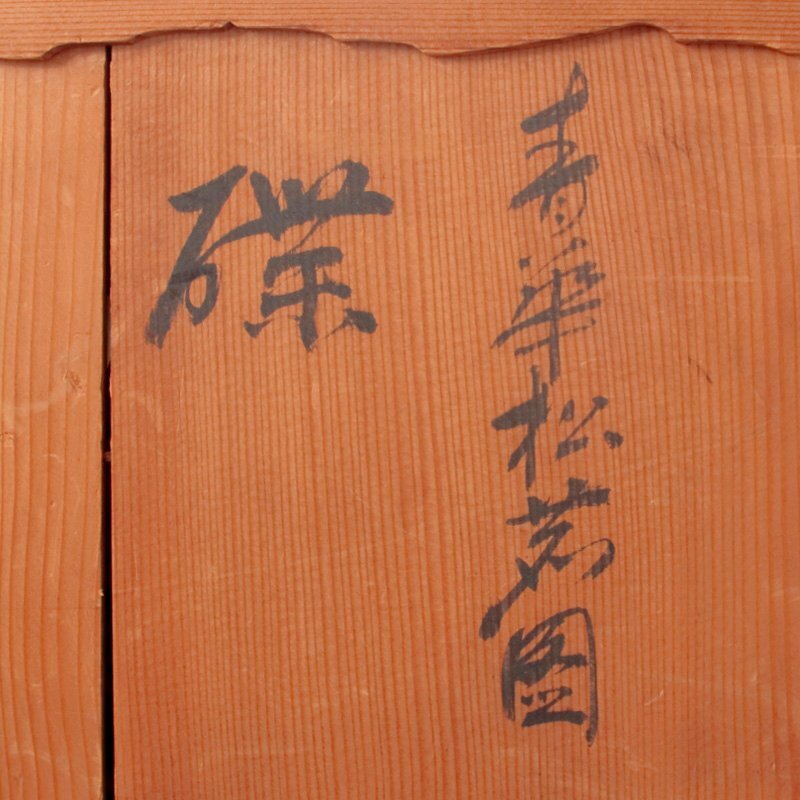 青華松図
碟